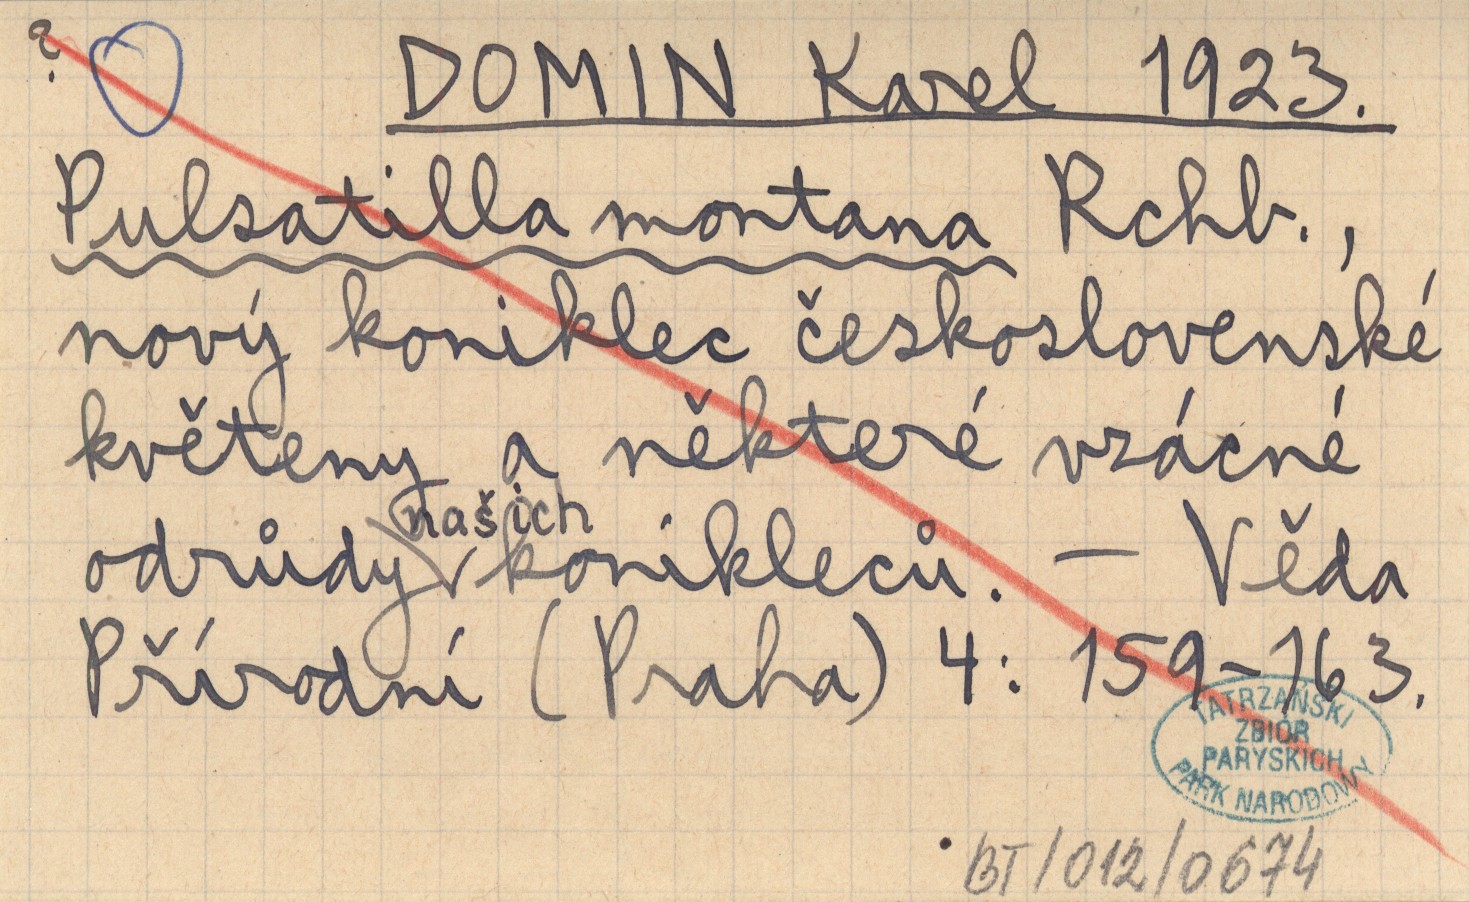 ?
DOMIN Karel 1923.
Pulsatilla montana Rchb.,
nový koniklec československé
květeny a některé vzácné
našich
odrůdy koniklecú. — Věda
Přírodní (Praha) 4: 159-163.
TATRZAŃSKI
ZBIÓR
PARYSKICH
PARK NARODOWY
BT/012/0674